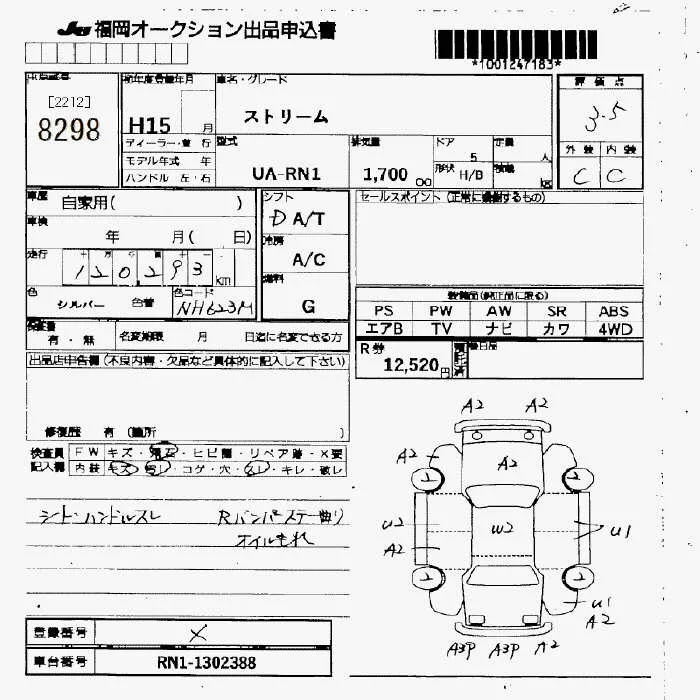 JU 福岡オークション出品申込書
*1001247183*
出品番号
[2212]
8298
初年度登録年月
H15 月
車名・グレード
ストリーム
評価点
3.5
外装 内装
C C
ディーラー・並行
モデル年式 年
ハンドル 左・右
型式
UA-RN1
排気量
1,700 cc
ドア
5
形状 H/B
定員
人
積載
kg
車歴
自家用( )
車検
年 月( 日)
走行 十 万 千 百 十 一
120,293 km
色
シルバー 色替
色コード
NH623M
シフト
D A/T
冷房
A/C
燃料
G
セールスポイント (正常に機能するもの)
装備品(純正品に限る)
PS PW AW SR ABS
エアB TV ナビ カワ 4WD
有・無
名変期限 月 日迄に名変できる方
R券
12,520 円
預託済
後日品
出品店申告欄 (不良内容・欠品など具体的に記入して下さい)
修復歴 有 (箇所 )
検査員 FW キズ・飛石・ヒビ割・リペア跡・×要
記入欄 内装 キズ・汚レ・コゲ・穴・スレ・キレ・破レ
シート・ハンドルスレ Rバンパーステー曲り
オイルもれ
A2 A2
A2
A2
2 2
U2 W2 U1
A2
2 2
U1
A2
A3P A3P A2
登録番号 ×
車台番号 RN1-1302388